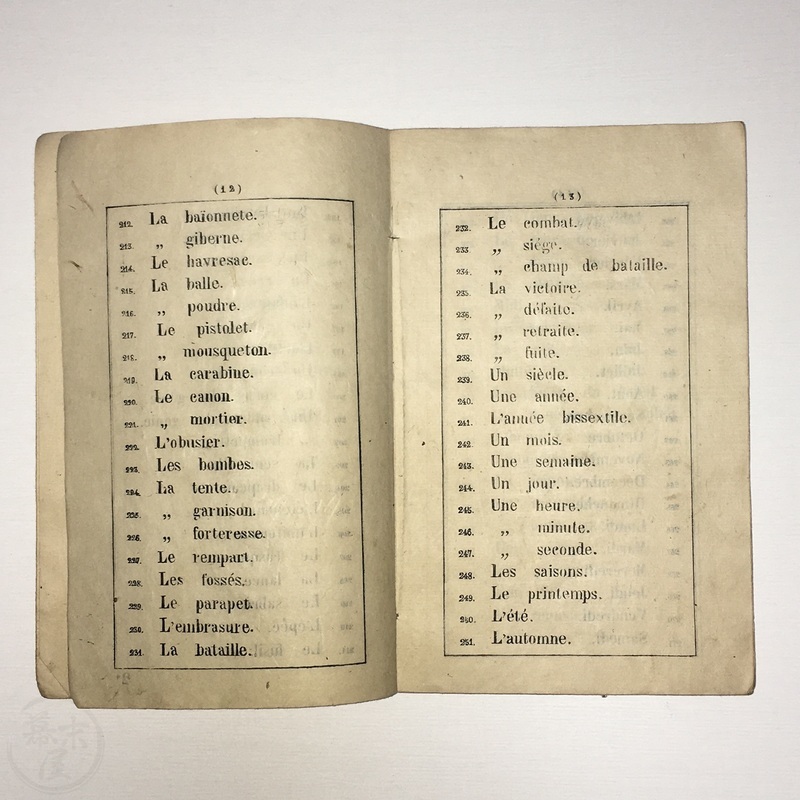 (12)
212. La baïonnete.
213. „ giberne.
214. Le havresac.
215. La balle.
216. „ poudre.
217. Le pistolet.
218. „ mousqueton.
219. La carabine.
220. Le canon.
221. „ mortier.
222. L'obusier.
223. Les bombes.
224. La tente.
225. „ garnison.
226. „ forteresse.
227. Le rempart.
228. Les fossés.
229. Le parapet.
230. L'embrasure.
231. La bataille.
(13)
232. Le combat.
233 „ siége.
234. „ champ de bataille.
235. La victoire.
236. „ défaite.
237. „ retraite.
238. „ fuite.
239. Un siècle.
240. Une année.
241. L'année bissextile.
242. Un mois.
243. Une semaine.
244. Un jour.
245. Une heure.
246. „ minute.
247. „ seconde.
248. Les saisons.
249. Le printemps.
250. L'été.
251. L'automne.
幕末屋